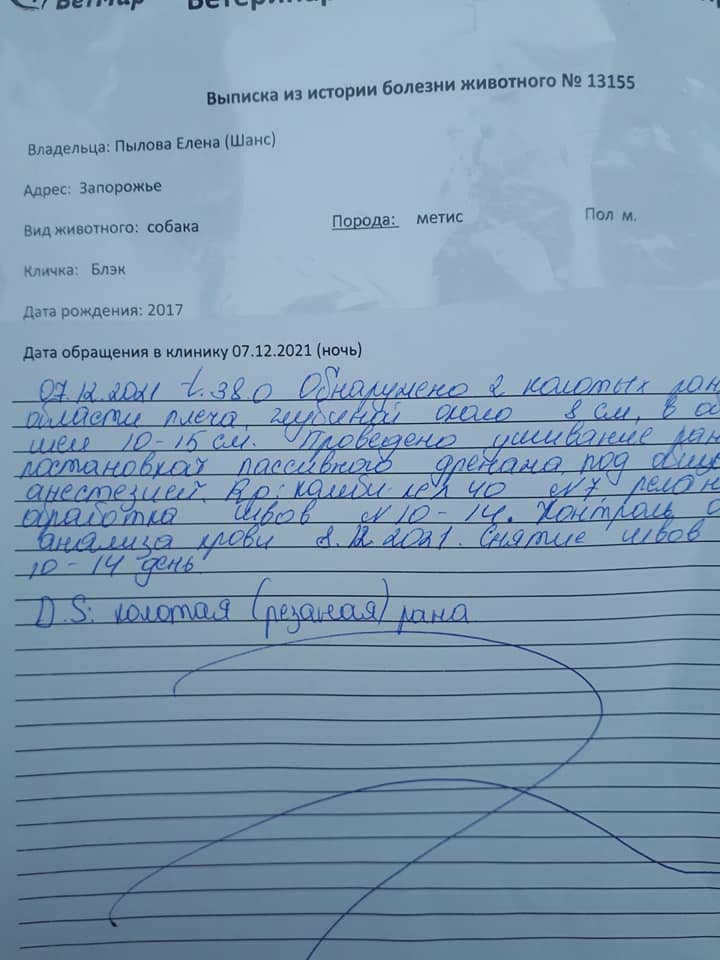 ВетМир Ветеринар
Выписка из истории болезни животного № 13155
Владельца: Пылова Елена (Шанс)
Адрес: Запорожье
Вид животного: собака Порода: метис Пол м.
Кличка: Блэк
Дата рождения: 2017
Дата обращения в клинику 07.12.2021 (ночь)
07.12.2021 t.38.0 Обнаружено 2 колотых ран
области плеча, глубиной около 8 см, в об
шеи 10-15 см. Проведено ушивание ран
постановкой пассивного дренажа под общ
анестезией. Rp: N7,
обработка швов N10-14. Контроль о
анализа крови 8.12.2021. Снятие швов
10-14 день.
D.S: колотая (резаная) рана